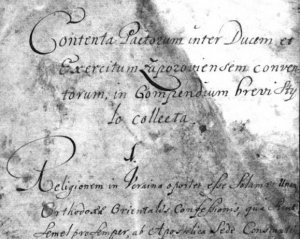 Contenta Pactorum inter Ducem et
Exercitum Zaporoviensem conven
torum, in Compendium brevi Sty
lo collecta
1.
Religionem in Ucraina oportet esse Solam et Unam
Orthodoxæ Orientalis Confessionis, qua
semel pro semper, ab Apostolica Sede Constanti